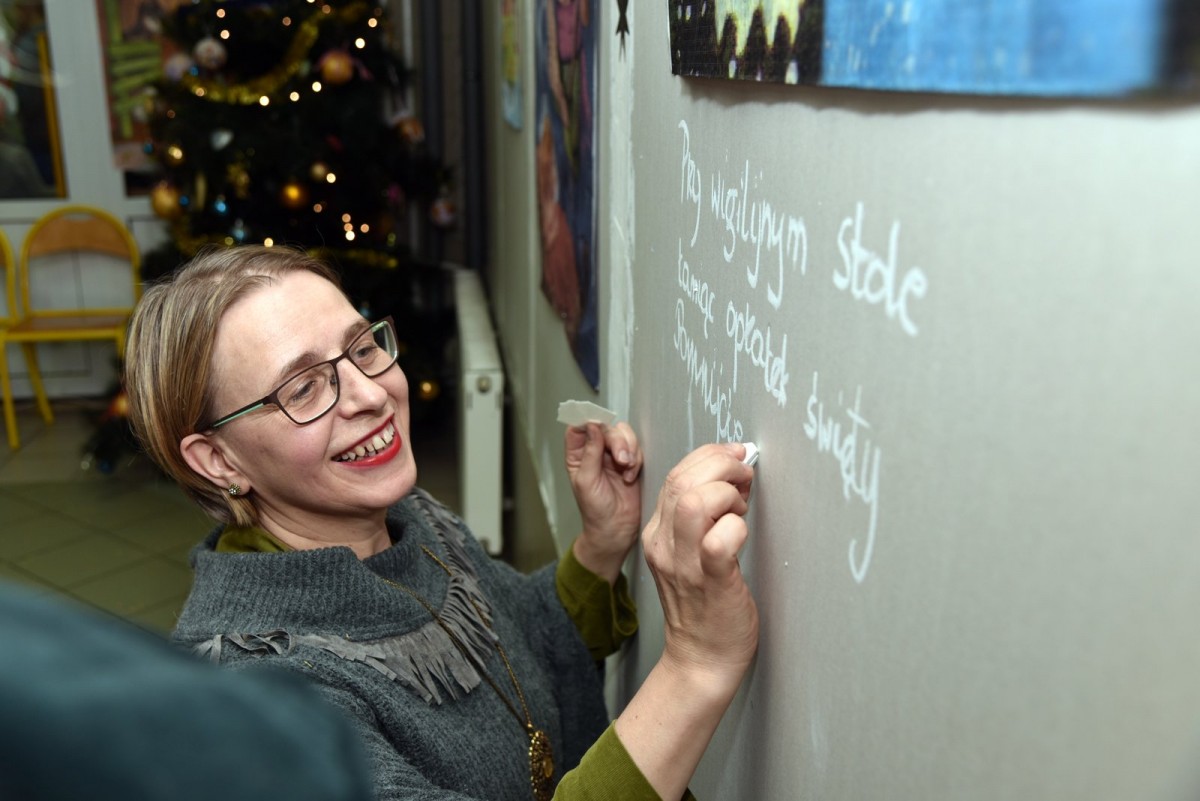 Przy wigilijnym stole
łamiąc opłatek święty
Pomnijcie